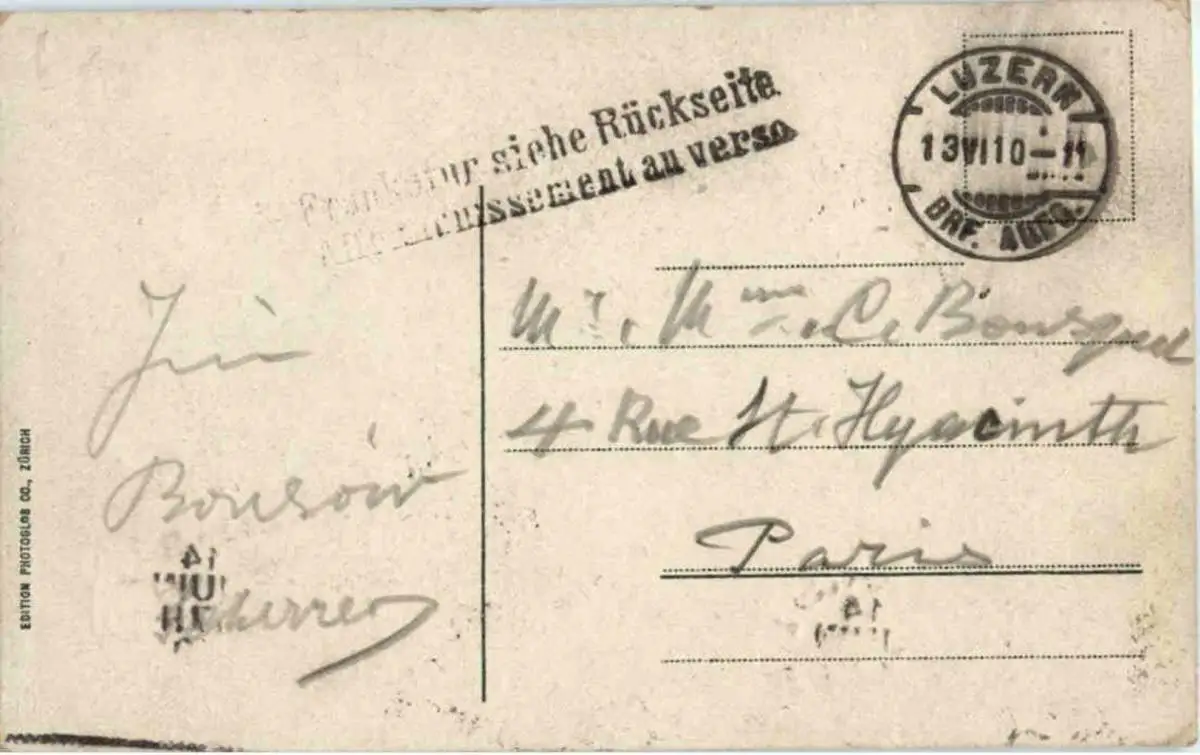 Frankatur siehe Rückseite
Affranchissement au verso
LUZERN
13 VI 10 – 11
BRF. AUFG.
Mr. Mme. C. Bousquet
4 Rue St. Hyacinth
Paris
Bonsoir
EDITION PHOTOGLOB CO., ZÜRICH
14
14